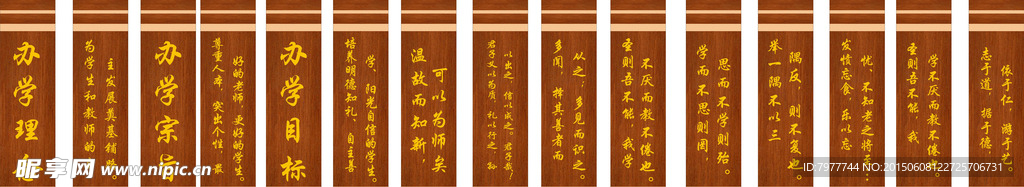 办学理念
为学生和教师的
主发展奠基铺路
办学宗旨
尊重人本，突出个性，最
好的老师，更好的学生。
办学目标
培养明德知礼、自主善
学、阳光自信的学生。
温故而知新，
可以为师矣
君子义以为质，礼以行之，孙
以出之，信以成之。君子哉！
多闻，择其善者而
从之，多见而识之。
圣则吾不能，我学
不厌而教不倦也。
学而不思则罔，
思而不学则殆。
举一隅不以三
隅反，则不复也。
发愤忘食，乐以忘
忧，不知老之将至
圣则吾不能，我
学不厌而教不倦
志于道，据于德，
依于仁，游于艺。
昵享网 www.nipic.cn
ID:7977744 NO:20150608122725706731